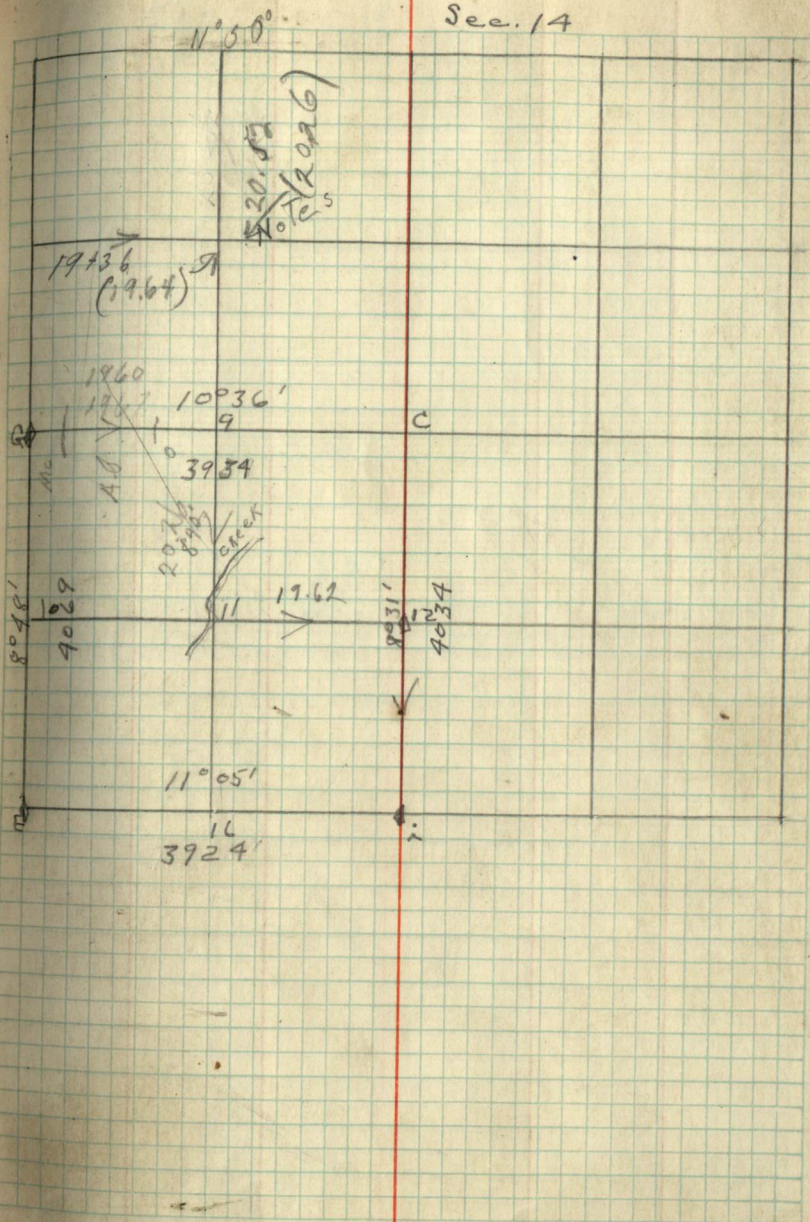 Sec. 14
11° 50'
(20.26)
19+36
(19.64)
1960
10°36'
9
C
3934
A.B
20.26
creek
8°48'
4069
11
19.62
8°31'
4034
11°05'
16
3924